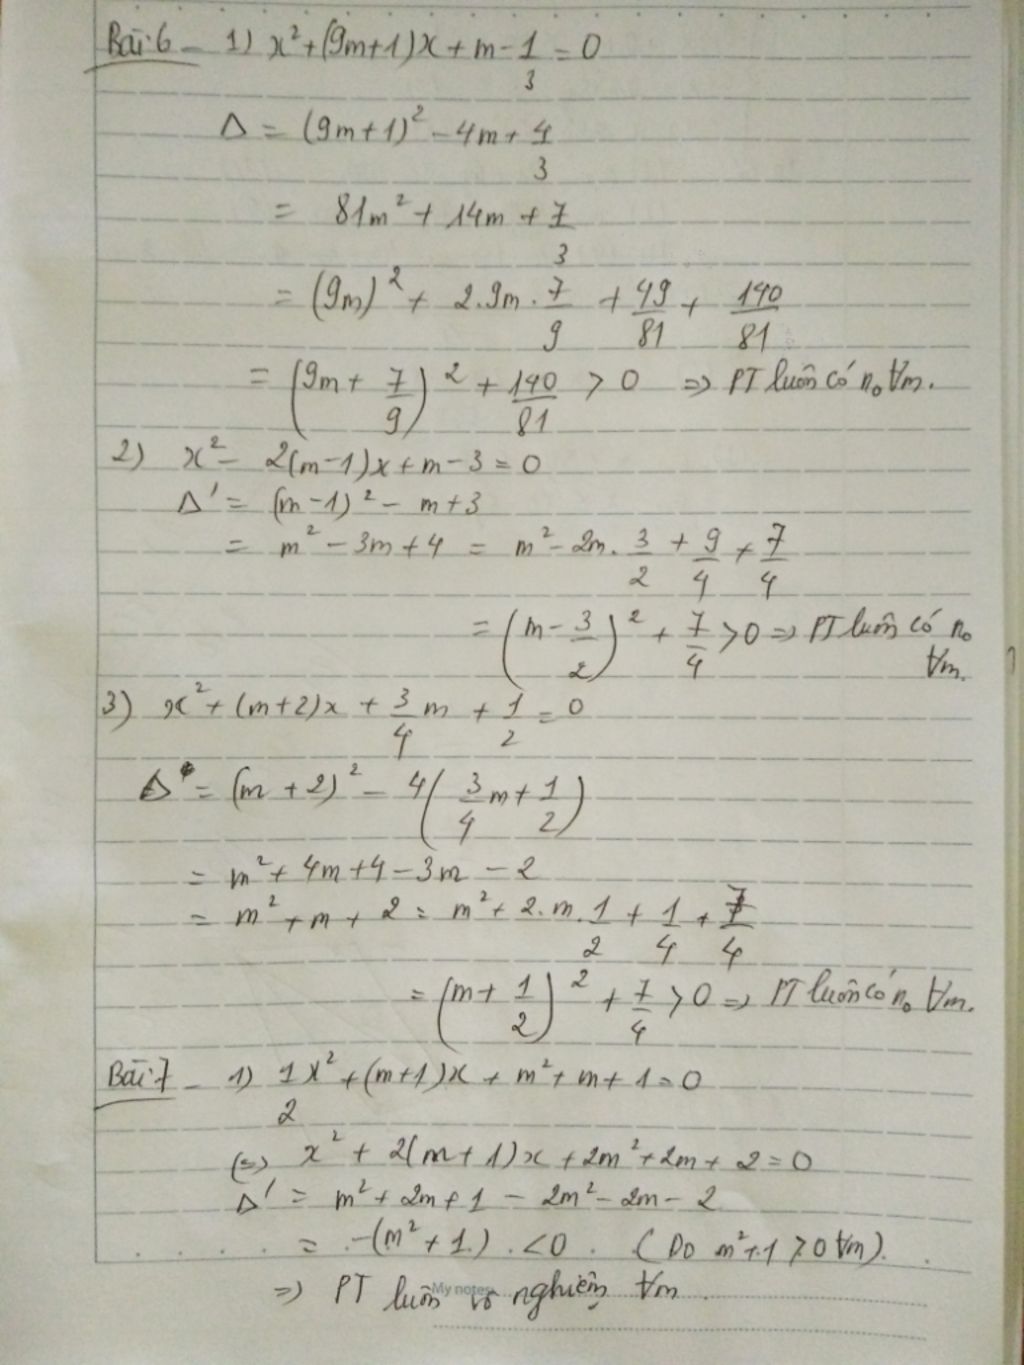 Bài 6 - 1) x² + (9m+1)x + m - 1/3 = 0
Δ = (9m+1)² - 4m + 4/3
= 81m² + 14m + 7/3
= (9m)² + 2.9m.7/9 + 49/81 + 140/81
= (9m + 7/9)² + 140/81 > 0 => PT luôn có n₀ ∀m.
2) x² - 2(m-1)x + m - 3 = 0
Δ' = (m-1)² - m + 3
= m² - 3m + 4 = m² - 2m.3/2 + 9/4 + 7/4
= (m - 3/2)² + 7/4 > 0 => PT luôn có n₀
∀m.
3) x² + (m+2)x + 3/4 m + 1/2 = 0
Δ = (m+2)² - 4(3/4 m + 1/2)
= m² + 4m + 4 - 3m - 2
= m² + m + 2 = m² + 2.m.1/2 + 1/4 + 7/4
= (m + 1/2)² + 7/4 > 0 => PT luôn có n₀ ∀m.
Bài 7 - 1) 1/2 x² + (m+1)x + m² + m + 1 = 0
(=) x² + 2(m+1)x + 2m² + 2m + 2 = 0
Δ' = m² + 2m + 1 - 2m² - 2m - 2
= -(m² + 1) < 0. (Do m² + 1 > 0 ∀m).
=> PT luôn vô nghiệm ∀m.
My notes